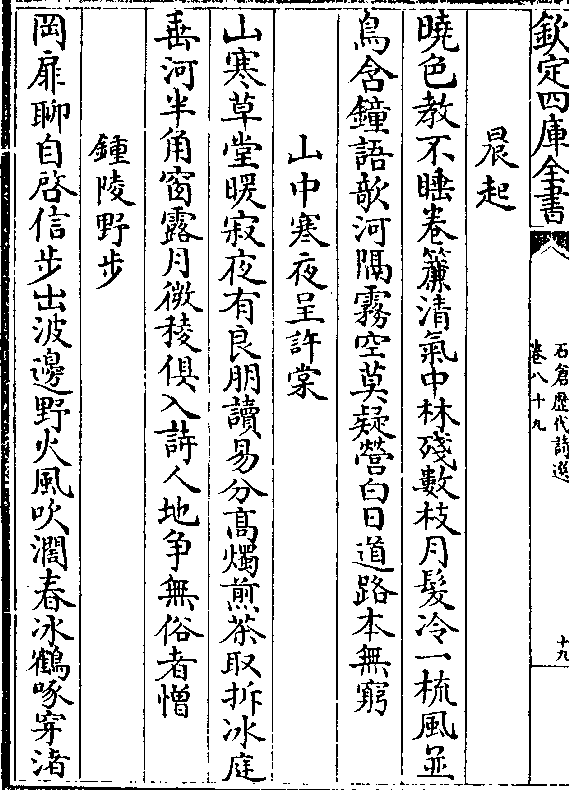 欽定四庫全書
石倉歴代詩選
卷八十九
十九
晨起
曉色教不睡卷簾清氣中林殘數枝月髮冷一梳風並
鳥含鐘語欹河隔霧空莫疑營白日道路本無窮
山中寒夜呈許棠
山寒草堂暖寂夜有良朋讀易分髙燭煎茶取折冰庭
垂河半角窗露月微稜俱入詩人地争無俗者憎
鍾陵野步
岡扉聊自啓信步出波邊野火風吹濶春冰鶴啄穿渚